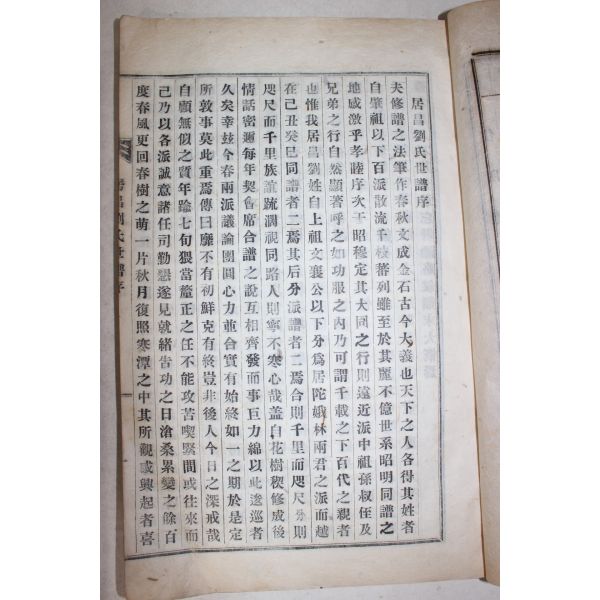 居昌劉氏世譜序
夫修譜之法筆作春秋文成金石古今大義也天下之人各得其姓者
自肇祖以下百派散流千枝蕃列雖至於其麗不億世系昭明同譜之
地感激乎孝睦序次于昭穆定其大同之行則遠近派中祖孫叔侄及
兄弟之行自然顯著呼之如功服之內乃可謂千載之下百代之親者
也惟我居昌劉姓自上祖文襄公以下分爲居陀娥林兩君之派而越
在己丑癸巳同譜者二焉其后分派譜者二焉合則千里而咫尺分則
咫尺而千里族誼疏濶視同路人則寧不寒心哉盖自花樹稧修成後
情話密邇每年契會席合譜之說互相齊發而事巨力綿以此逡巡者
久矣幸玆今春兩派議論團圓心力並合實有始終如一之期於是定
所敦事莫此重焉傳曰靡不有初鮮克有終豈非後人今日之深戒哉
自顧無似之質年踰七旬猥當釐正之任不能攻苦喫緊間或往來而
己乃以各派誠意諸任司勤懇遂見就緖告功之日滄桑累變之餘百
度春風更回春樹之萌一片秋月復照寒潭之中其所觀感興起者喜
居昌劉氏世譜序